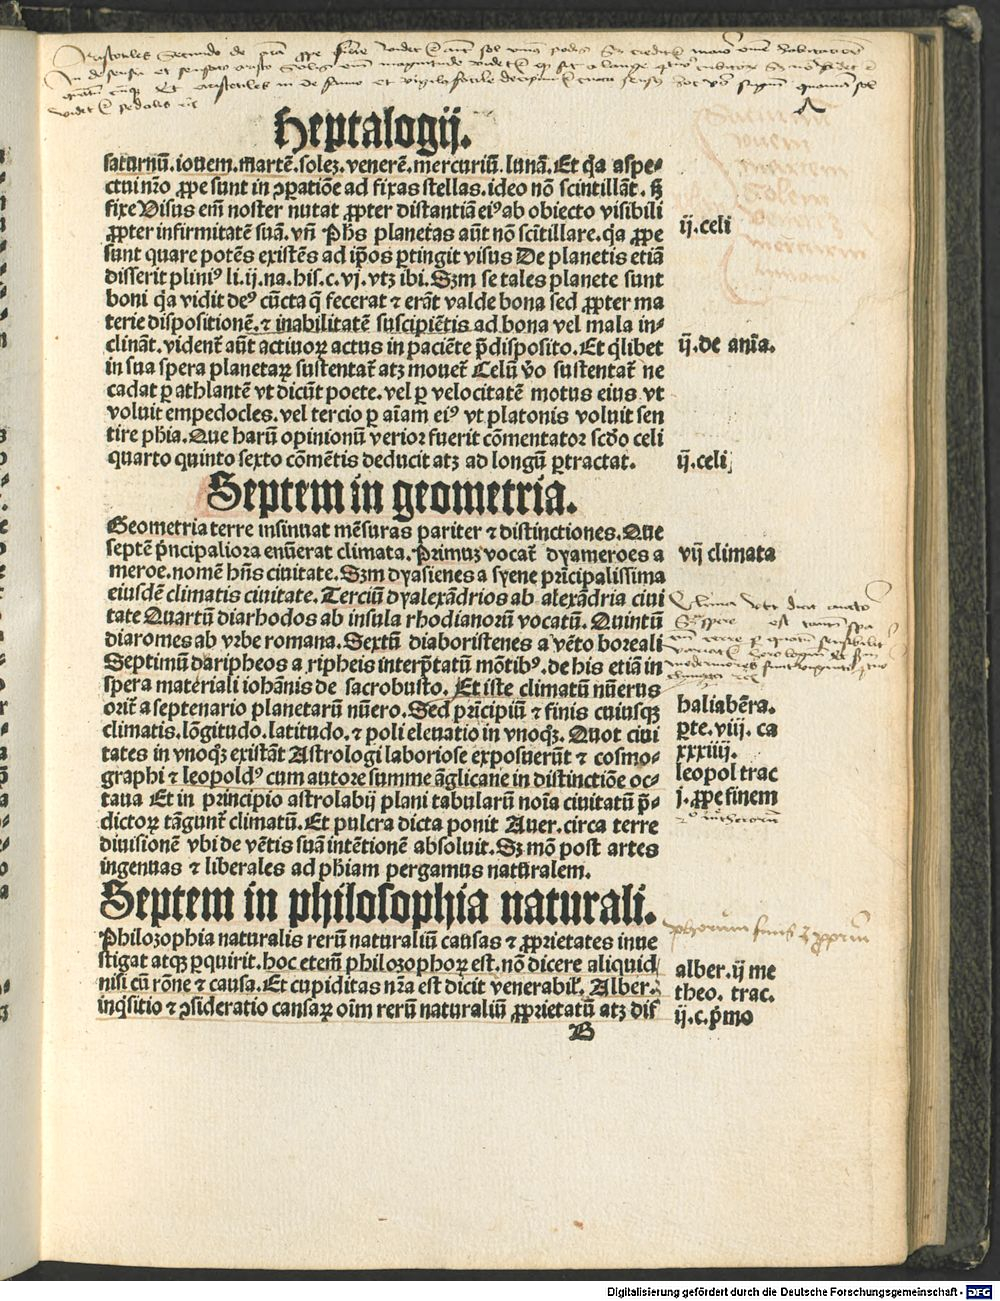 Heptalogij.
saturnū. iouem. martē. solez. venerē. mercuriū. lunā. Et q̇a aspe⸗
ctui nr̄o ꝓpe sunt in ꝯpatiōe ad fixas stellas. ideo nō scintillāt. sꝫ
fixe Visus em̄ noster nutat ꝓpter distantiā eiꝰ ab obiecto visibili
ꝓpter infirmitatē suā. vn̄ Ph̄s planetas aūt nō scītillare. q̇a ꝓpe
ij. celi
sunt quare potēs existēs ad ip̄os ꝑtingit visus De planetis etiā
disserit pliniꝰ li. ij. na. his. c. vj. vtꝫ ibi. Sꝫm se tales planete sunt
boni q̇a vidit deꝰ cūcta q̄ fecerat ⁊ erāt valde bona sed ꝓpter ma
terie dispositionē. ⁊ inabilitatē suscipiētis ad bona vel mala in⸗
clināt. vident̄ aūt actiuoꝝ actus in paciēte p̄disposito. Et q̇libet
ij. de aīa.
in sua spera planetaꝝ sustentat̄ atꝫ mouet̄ Celū v̄o sustentat̄ ne
cadat ꝑ athlantē vt dicūt poete. vel ꝑ velocitatē motus eius vt
voluit empedocles. vel tercio ꝑ aīam eiꝰ vt platonis voluit sen
tire ph̄ia. Que harū opinionū verior fuerit cōmentator scd̄o celi
quarto quinto sexto cōmētis deducit atꝫ ad longū ꝑtractat.
ij. celi
Septem in geometria.
Geometria terre insinuat mēsuras pariter ⁊ distinctiones. Que
septē p̄ncipaliora enūerat climata. Primuꝫ vocat̄ dyameroes a
vij climata
meroe. nomē hn̄s ciuitate. Sꝫm dyasienes a syene pr̄icipalissima
eiusdē climatis ciuitate. Terciū dyalexādrios ab alexādria ciui
tate Quartū diarhodos ab insula rhodianorū vocatū. Quintū
diaromes ab vrbe romana. Sextū diaboristenes a vēto boreali
Septimū daripheos a ripheis interp̄tatū mōtibꝰ. de his etiā in
spera materiali iohānis de sacrobusto. Et iste climatū nūerus
orit̄ a septenario planetarū nūero. Sed pr̄icipiū ⁊ finis cuiusqꝫ
haliabēra.
climatis. lōgitudo. latitudo. ⁊ poli eleuatio in vnoqꝫ. Quot ciui
ꝑte. viij. ca
tates in vnoqꝫ existāt Astrologi laboriose exposuerūt ⁊ cosmo⸗
xxxiiij.
graphi ⁊ leopoldꝰ cum autore summe āglicane in distinctiōe oc⸗
leopol trac
taua Et in principio astrolabij plani tabularū noīa ciuitatū p̄⸗
j. ꝓpe finem
dictoꝝ tāgunt̄ climatū. Et pulcra dicta ponit Auer. circa terre
diuisionē vbi de vētis suā intētionē absoluit. Sꝫ mō post artes
ingenuas ⁊ liberales ad ph̄iam pergamus naturalem.
Septem in philosophia naturali.
Philozophia naturalis rerū naturaliū causas ⁊ ꝓprietates inue
stigat atqꝫ ꝑquirit. hoc etem̄ philozophoꝝ est. nō dicere aliquid
alber. ij me
nisi cū rōne ⁊ causa. Et cupiditas nr̄a est dicit venerabil̄. Alber.
theo. trac.
inq̇sitio ⁊ ꝯsideratio causaꝝ oīm rerū naturaliū ꝓprietatū atꝫ dif
ij. c. p̄mo
B
Digitalisierung gefördert durch die Deutsche Forschungsgemeinschaft - DFG